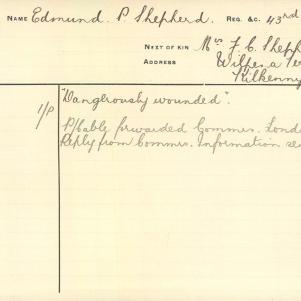 NAME Edmund. P Shepherd. REG. &C. 43rd
NEXT OF KIN Mrs F. C. Sheph
ADDRESS
Kilkenny
1/P "Dangerously wounded".
P/Cable forwarded Commrs. Londo
Reply from Commrs. Information re